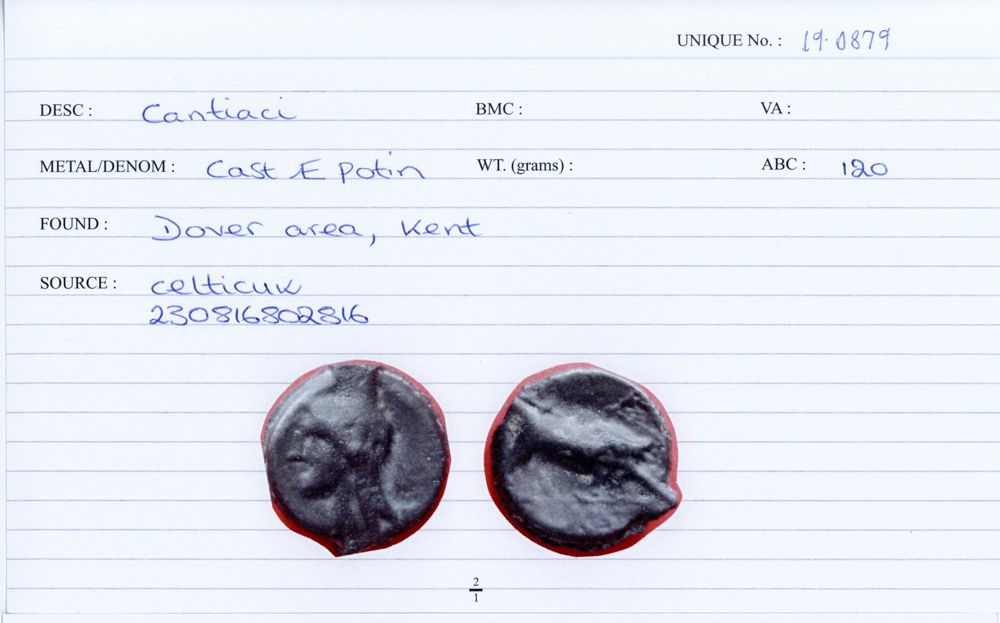 UNIQUE No. : 19.0879
DESC : Cantiaci BMC : VA :
METAL/DENOM : Cast Æ Potin WT. (grams) : ABC : 120
FOUND : Dover area, Kent
SOURCE : celticuk
230816802816
2
1